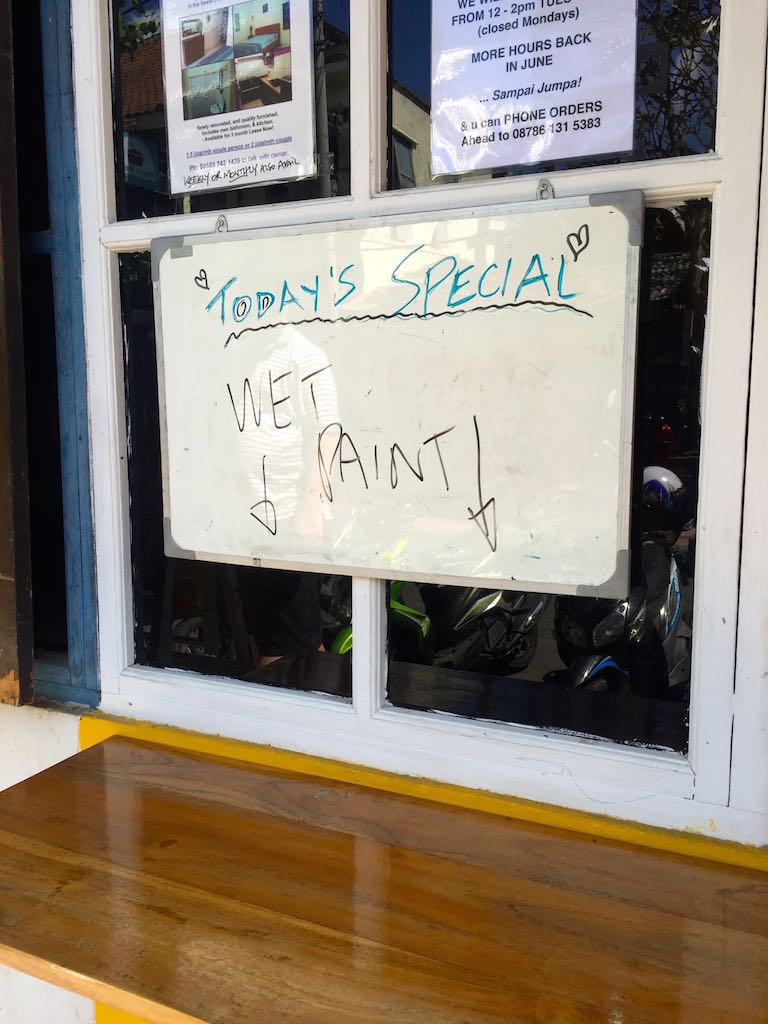 Newly renovated, and quality furnished.
Includes own bathroom, & kitchen.
- Available for 3 month Lease Now!
1.5 juta/mth single person or 2 juta/mth couple
to talk with owner.
WEEKLY OR MONTHLY ALSO AVAIL
FROM 12 - 2pm TUES
(closed Mondays)
MORE HOURS BACK
IN JUNE
... Sampai Jumpa!
& u can PHONE ORDERS
Ahead to 08786 131 5383
TODAY'S SPECIAL
WET
PAINT